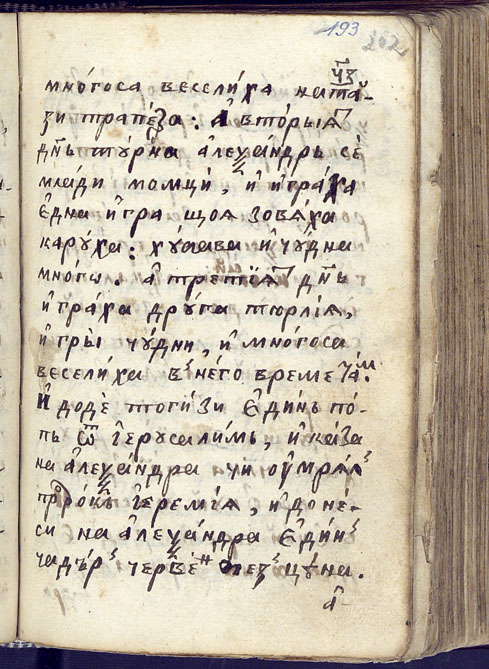 193
202
ч҃з
мно́госа весели́ха на таѝ-
зи трапе́за: А҆ вто́рыѧ
дн҃ь тꙋ́рна а҆леѯа́ндрь се́
мла́ди момци̑, и҆ и҆гра́ха
є҆дна и҆гра щоѧ зовѧ́ха
карꙋ́ха: хꙋ́бава и҆ чꙋ́дна
мно́гѡ. а҆ тре́тїѧ дн҃ь
и҆гра́ха дрꙋ́га тюрлі́ѧ,
и҆гры̀ чꙋ́дни, и҆ мно́госа
весели́ха в не́го време ча́м.
И҆ додѐ тоги́зи є҆ди́нь по́-
пь ѿ і҆ерꙋсали́мь, и҆ ка́за
на а҆леѯа́ндра чи оу҆мрѧ́л
про́рокъ і҆еремі́ѧ, и҆ доне́-
си на а҆леѯа́ндра є҆ди́н
чадъ́р черве́н без цѣна.
а҆